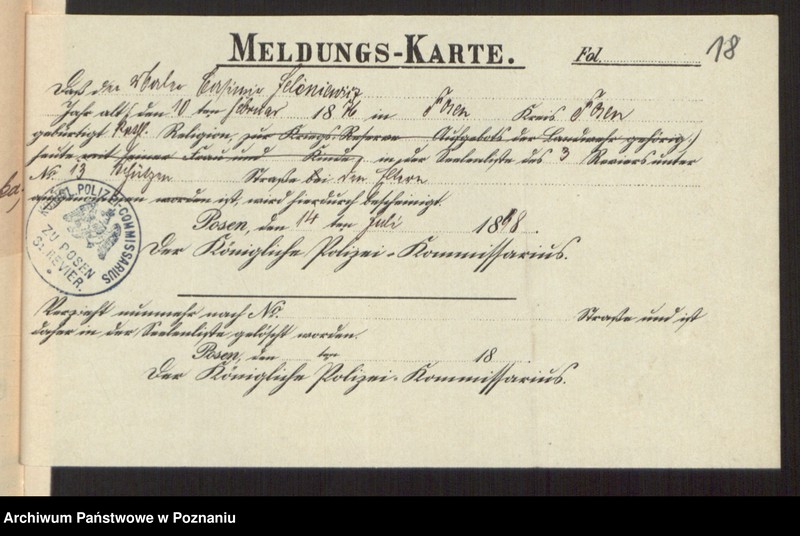 MELDUNGS-KARTE.
Fol. 18
Daß der Maler Casimir
Jahr alt, den 10 ten Februar 1876 in Posen Kreis Posen
gebürtigt kath. Religion, zur Kriegs-Reserve Aufgebots der Landwehr gehörig,
heute mit seiner Frau und Kinde, in der Seelenliste des 3 Reviers unter
No. 13 Schützen Straße bei den Eltern
aufgenommen worden ist, wird hierdurch bescheinigt.
Posen, den 14 ten Juli 1898.
Der Königliche Polizei-Kommissarius.
KÖNIGL. POLIZEI-COMMISSARIUS
ZU POSEN
3. REVIER.
Verzieht nunmehr nach No. Straße und ist
daher in der Seelenliste gelöscht worden.
Posen, den ten 18
Der Königliche Polizei-Kommissarius.
Archiwum Państwowe w Poznaniu